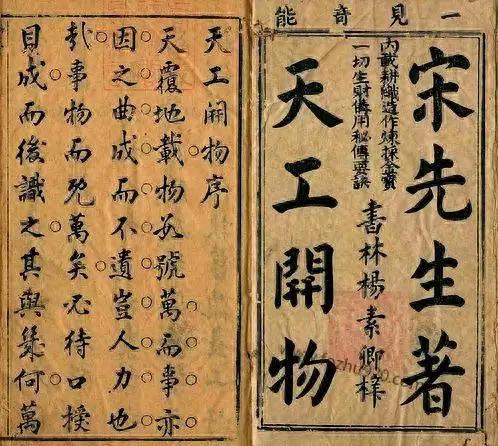 一見奇能
宋先生著
內載耕織造作煉採金寶
一切生財備用秘傳要訣
書林楊素卿梓
天工開物
天工開物序
天覆地載物数號萬而事亦
因之曲成而不遺豈人力也
哉事物而既萬矣必待口授
目成而後識之其與幾何萬